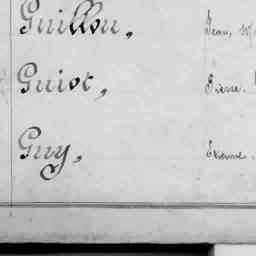 Guillou, Jean,
Guiot, Pierre.
Guy, Etienne.